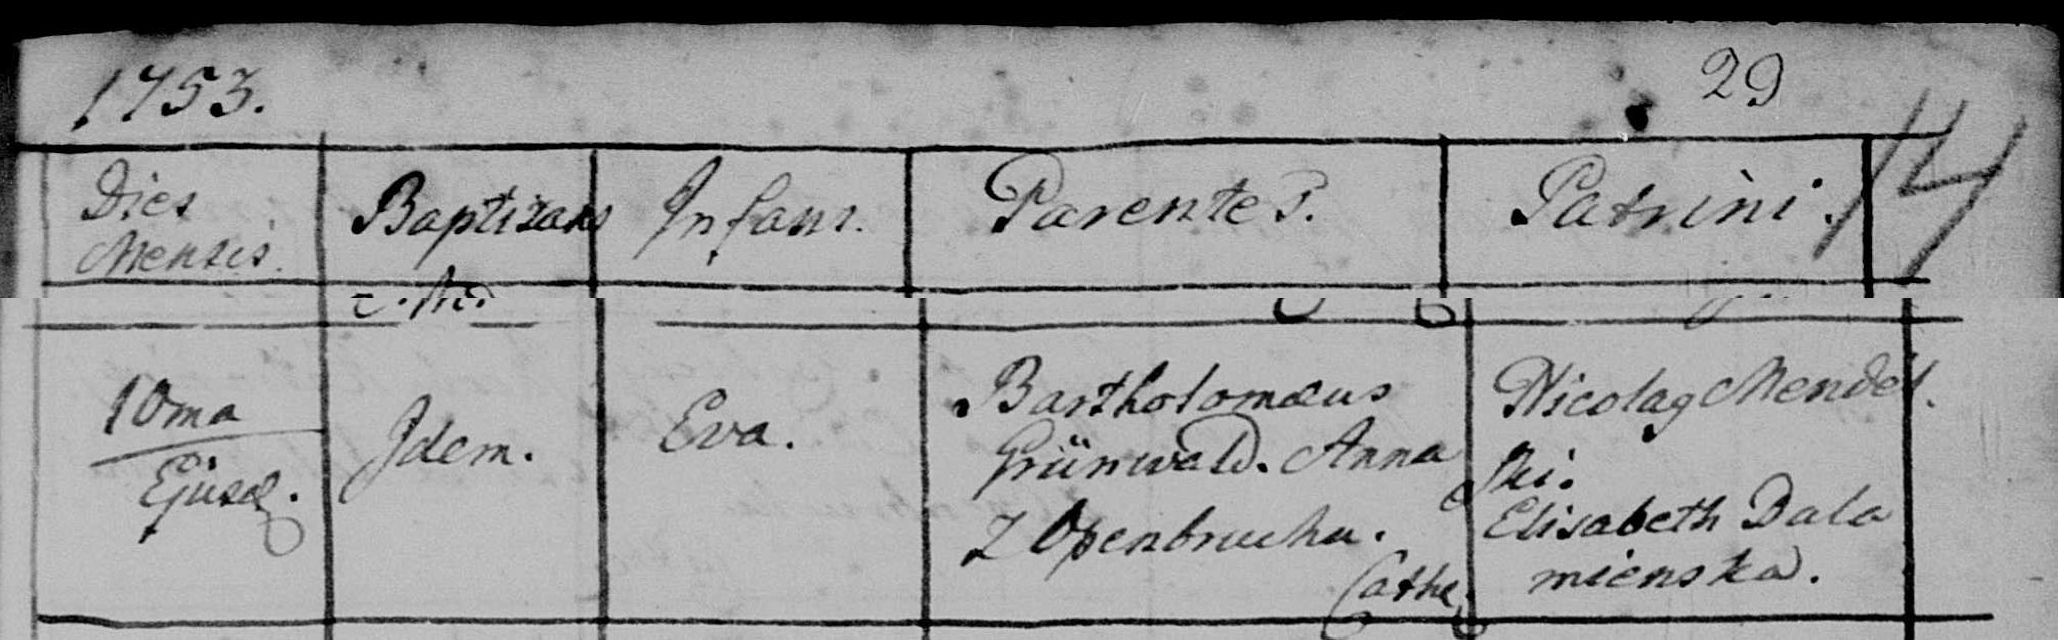 1753.
29
14
Dies Mensis.
Baptizans
Infans.
Parentes.
Patrini.
10ma
Ejusd.
Idem.
Eva.
Bartholomæus
Grünwald. Anna
z Openbruchu.
Cathe.
Nicolay Mendel.
ski.
Elisabeth Dala
mienska.